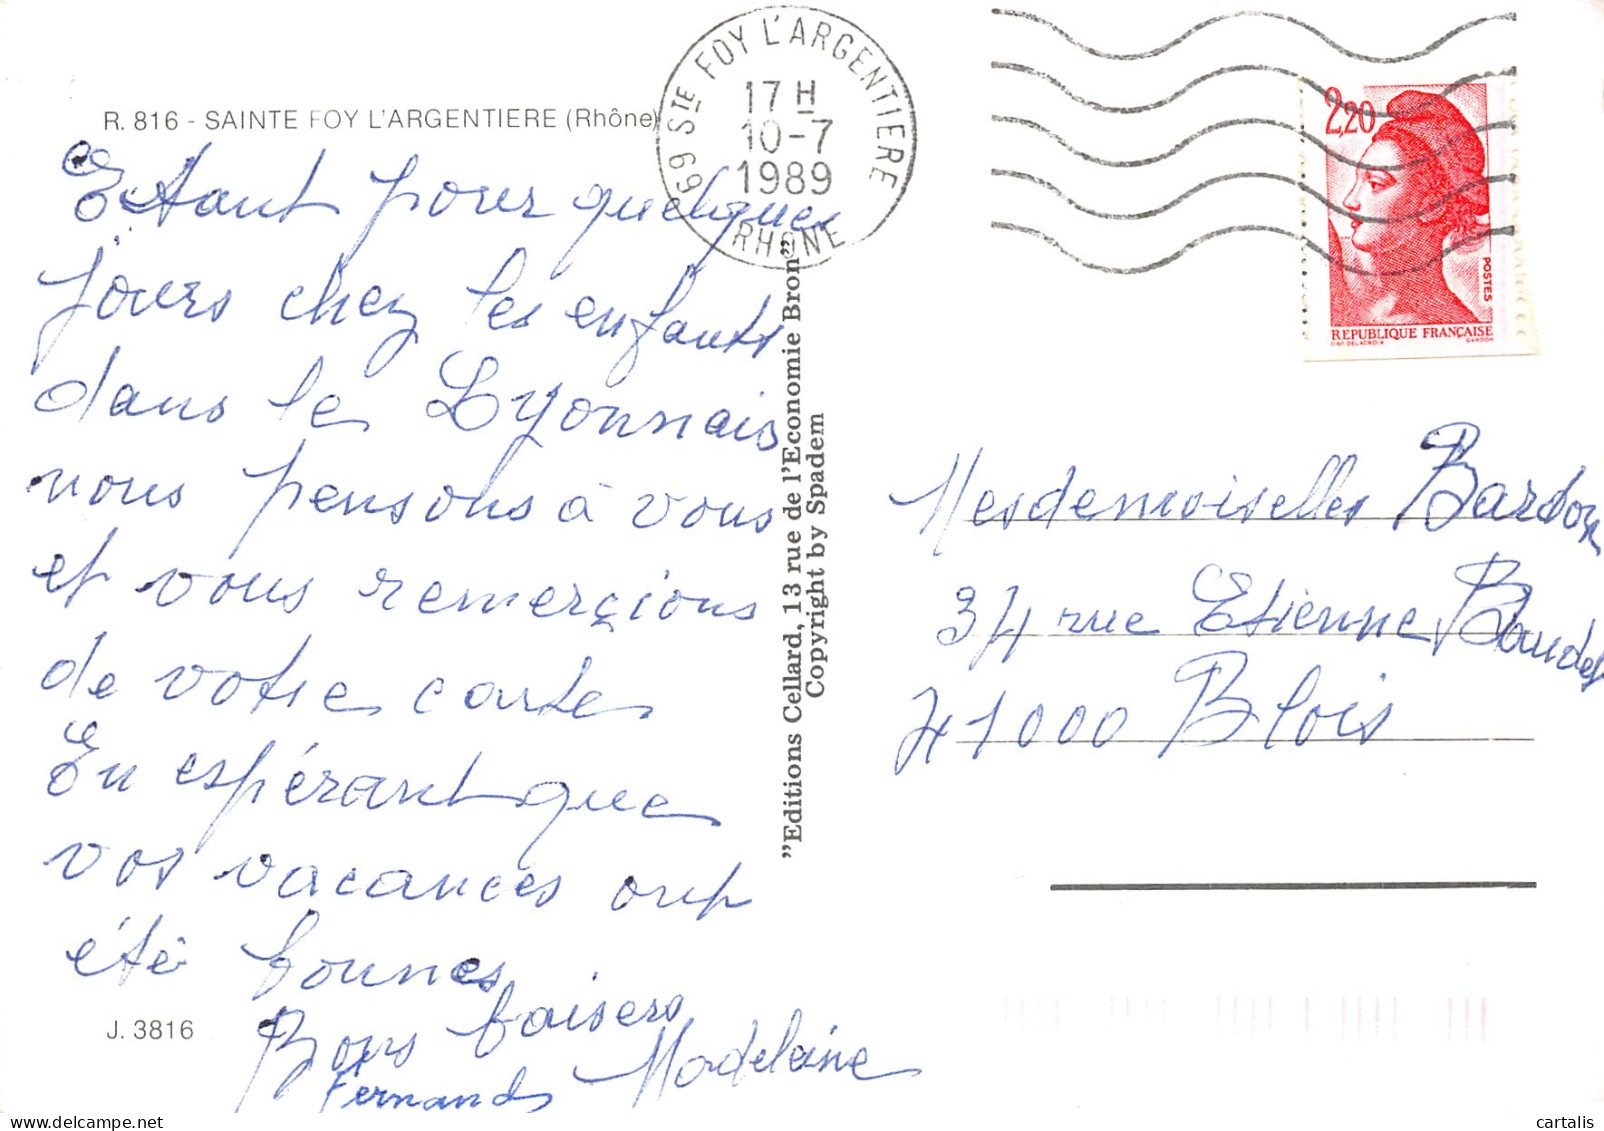 R. 816 - SAINTE FOY L'ARGENTIERE (Rhône)
69 STE FOY L'ARGENTIERE
17 H
10-7
1989
RHONE
2,20
POSTES
REPUBLIQUE FRANÇAISE
D'AP. DELACROIX GANDON
Etant pour quelques
jours chez les enfants
dans le Lyonnais
nous pensons à vous
et vous remerçions
de votre carte
En espérant que
vos vacances ont
été bonnes
Bons baisers
Fernand Madeleine
J. 3816
"Editions Cellard, 13 rue de l'Economie Bron"
Copyright by Spadem
Mesdemoiselles Bardon
34 rue Etienne Baudet
41000 Blois
cartalis
delcampe.net